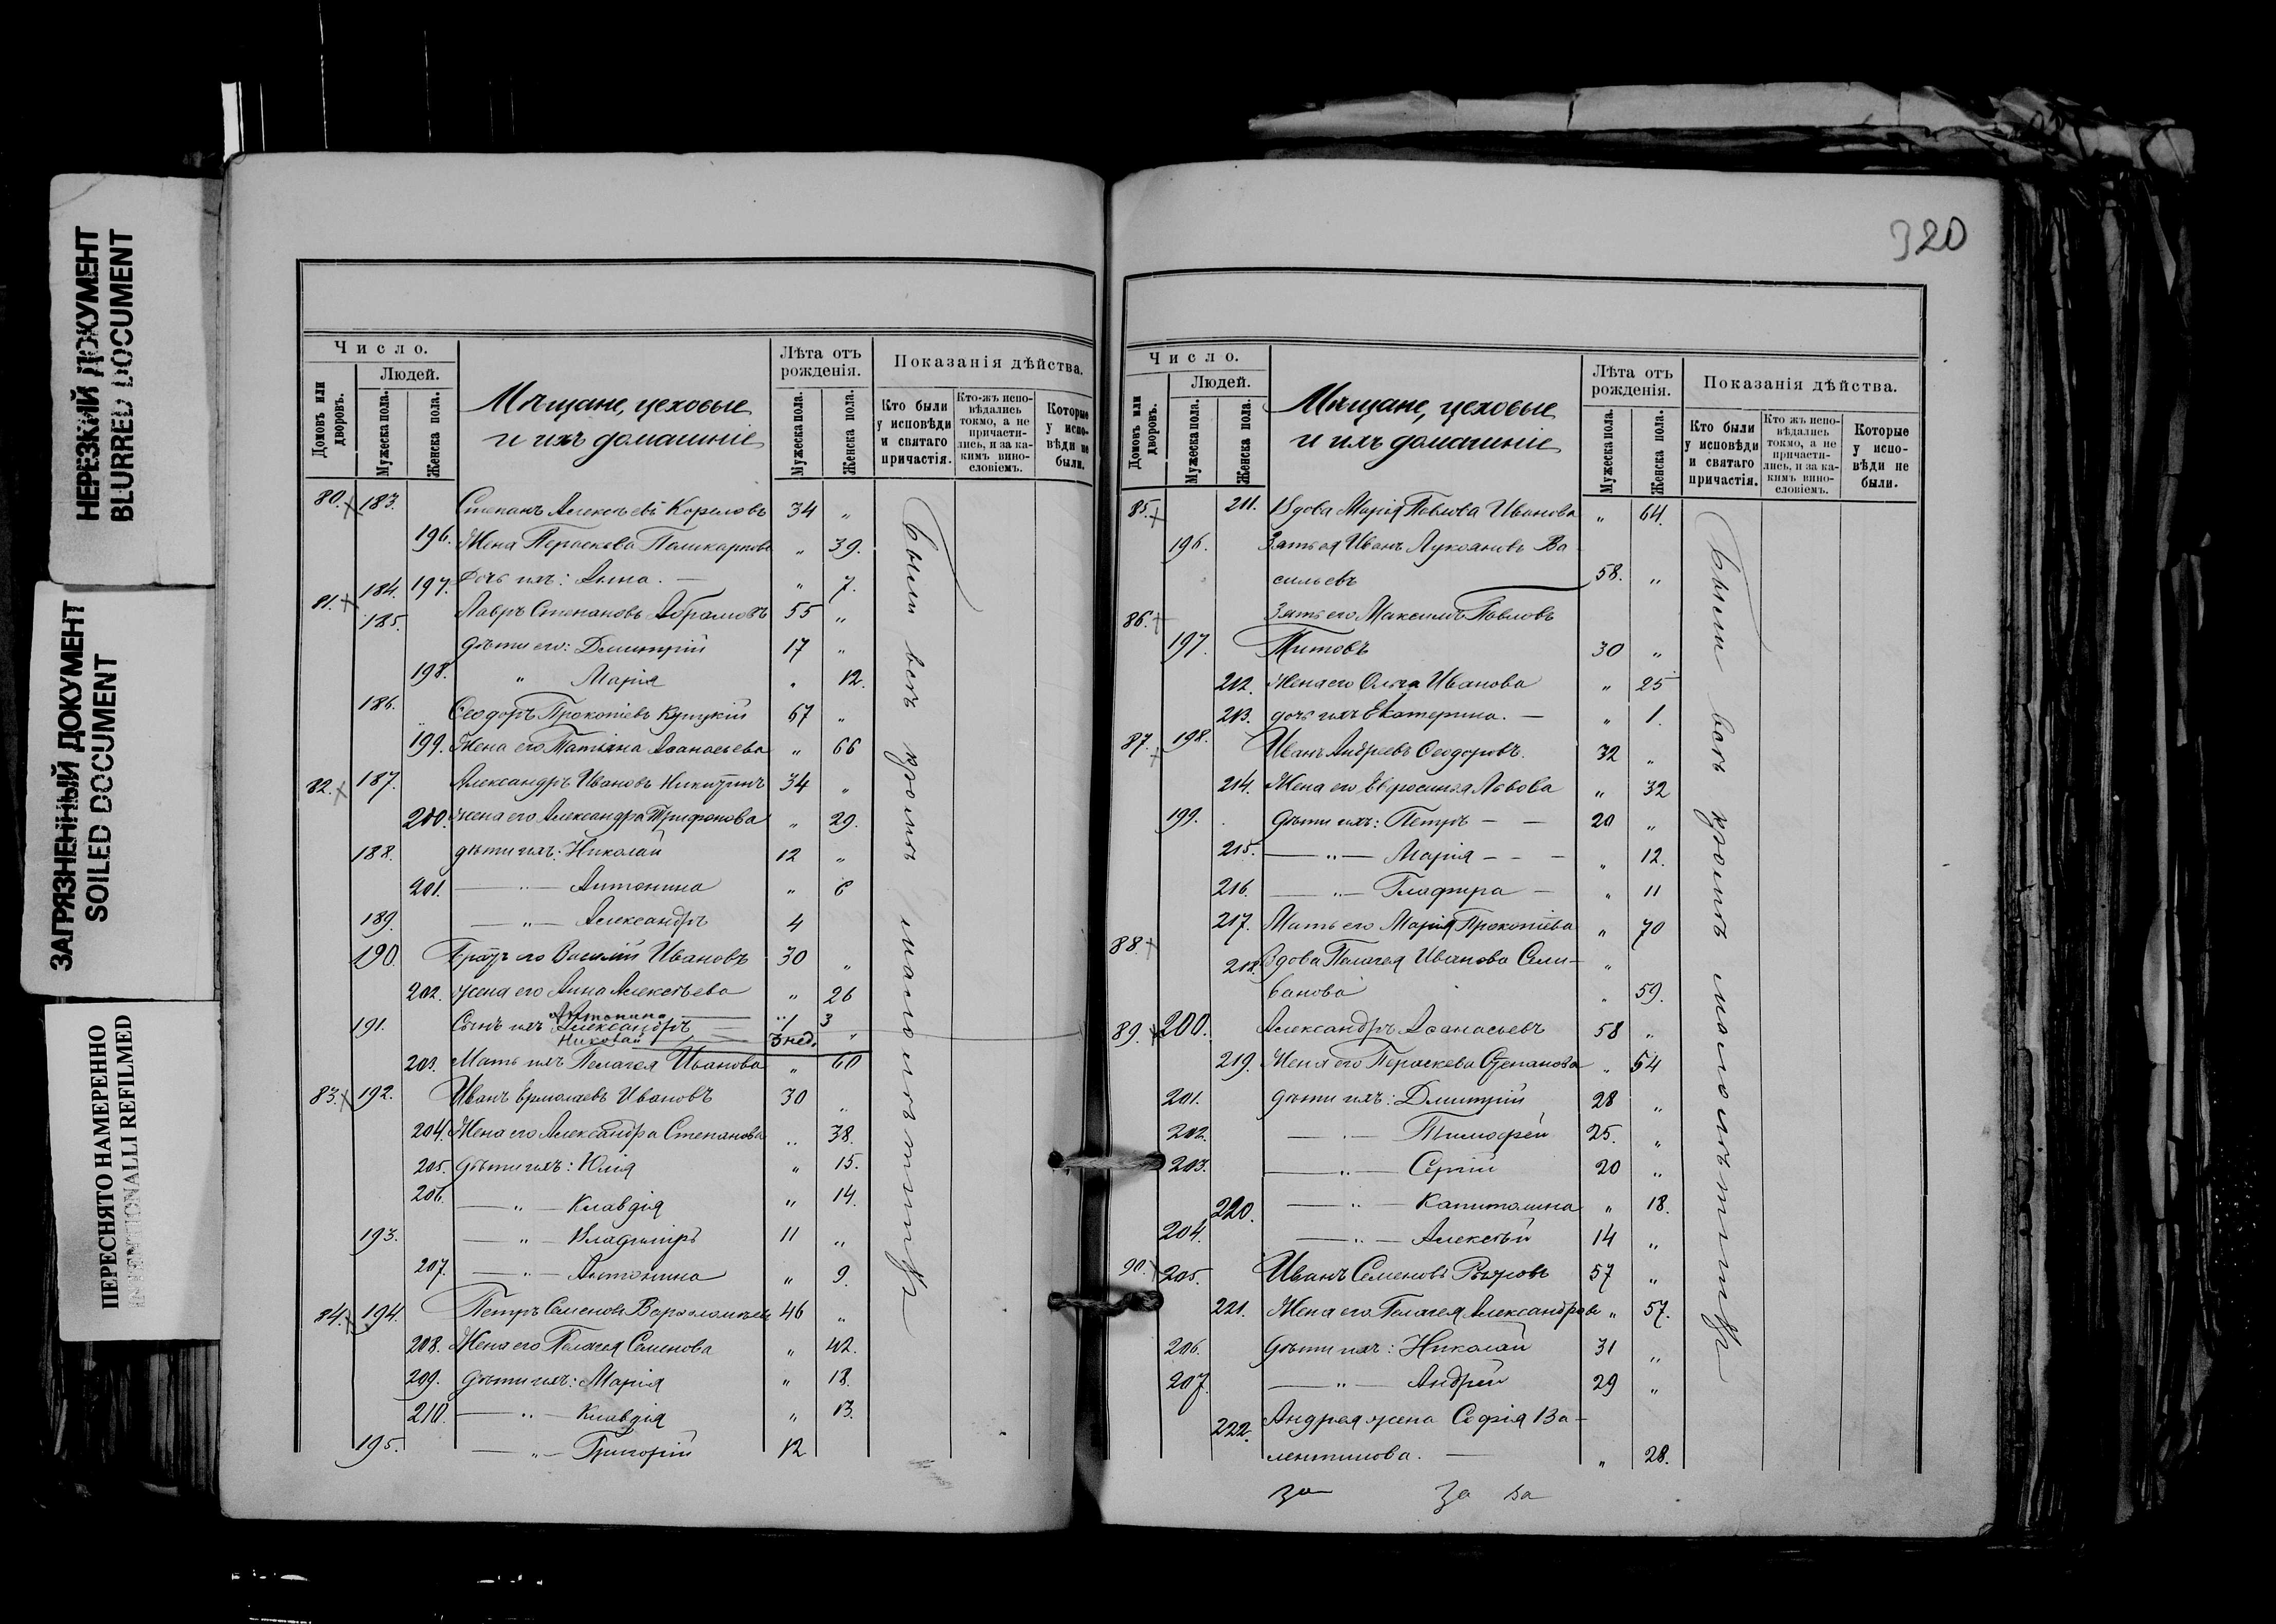 НЕРЕЗКИЙ ДОКУМЕНТ
BLURRED DOCUMENT
ЗАГРЯЗНЕННЫЙ ДОКУМЕНТ
SOILED DOCUMENT
ПЕРЕСНЯТО НАМЕРЕННО
INTENTIONALLI REFILMED
Число.
Домовъ или дворовъ.
Людей.
Мужеска пола.
Женска пола.
Мѣщане, цеховые
и ихъ домашніе
Лѣта отъ рожденія.
Мужеска пола.
Женска пола.
Показанія дѣйства.
Кто были у исповѣди и святаго причастія.
Кто-жъ исповѣдались токмо, а не причастились, и за какимъ винословіемъ.
Которые у исповѣди не были.
80. 183. Степанъ Алексѣевъ Кореловъ 34 „
196. Жена Параскева Поликарпова „ 39.
197. дочь ихъ: Анна. — „ 7.
81. 184. Лавръ Степановъ Абрамовъ 55 „
185. дѣти его: Дмитрій 17 „
198. „ Марія „ 12.
186. Ѳеодоръ Прокопіевъ Куцкій 67 „
199. Жена его Татіана Аѳанасьева „ 66
82. 187. Александръ Ивановъ Никитинъ 34 „
200. жена его Александра Трифонова „ 29.
188. дѣти ихъ: Николай 12 „
201. — „ — Антонина „ 6
189. — „ — Александръ 4
190. Братъ его Василій Ивановъ 30 „
202. жена его Анна Алексѣева „ 26
Антонина — „ 3
191. Сынъ ихъ Александръ — 1
Николай 3 нед. „
203. Мать ихъ Пелагея Иванова „ 60
83. 192. Иванъ Ермолаевъ Ивановъ 30 „
204. Жена его Александра Степанова „ 38.
205. дѣти ихъ: Юлія „ 15.
206. — „ — Клавдія „ 14.
193. — „ — Владиміръ 11 „
207. — „ — Антонина „ 9.
84. 194. Петръ Семеновъ Варѳоломѣевъ 46 „
208. Жена его Пелагея Семенова „ 42.
209. дѣти ихъ: Марія „ 18.
210. — „ — Клавдія „ 13.
195. — „ — Григорій 12
Были всѣ кромѣ малолѣтнихъ
320
Число.
Домовъ или дворовъ.
Людей.
Мужеска пола.
Женска пола.
Мѣщане, цеховые
и ихъ домашніе
Лѣта отъ рожденія.
Мужеска пола.
Женска пола.
Показанія дѣйства.
Кто были у исповѣди и святаго причастія.
Кто жъ исповѣдались токмо, а не причастились, и за какимъ винословіемъ.
Которые у исповѣди не были.
85. 211. Вдова Марія Павлова Иванова „ 64.
196. Зять ея Иванъ Лукояновъ Ва
сильевъ 58. „
86. Зять его Максимъ Павловъ
197. Титовъ 30 „
212. Жена его Ольга Иванова „ 25
213. дочь ихъ Екатерина. — „ 1.
87. 198. Иванъ Андреевъ Ѳеодоровъ. 32 „
214. Жена его Евфросинья Львова „ 32
199. дѣти ихъ: Петръ — — 20 „
215. — „ — Марія — — — „ 12.
216. — „ — Глафира — „ 11
217. Мать его Марія Прокопіева „ 70
88. 218. Вдова Пелагея Иванова Сели- „
ванова „ 59.
89. 200. Александръ Аѳанасьевъ 58 „
219. Жена его Параскева Степанова „ 54
201. дѣти ихъ: Дмитрій 28 „
202. — „ — Тимофей 25. „
203. — „ — Сергій 20 „
220. — „ — Капитолина „ 18.
204. — „ — Алексѣй 14 „
90. 205. Иванъ Семеновъ 57 „
221. Жена его Пелагея Александрова „ 57.
206. дѣти ихъ: Николай 31 „
207. — „ — Андрей 29 „
222. Андрея жена Софія Ва-
лентинова. — „ 28.
Были всѣ кромѣ малолѣтнихъ
За За ва